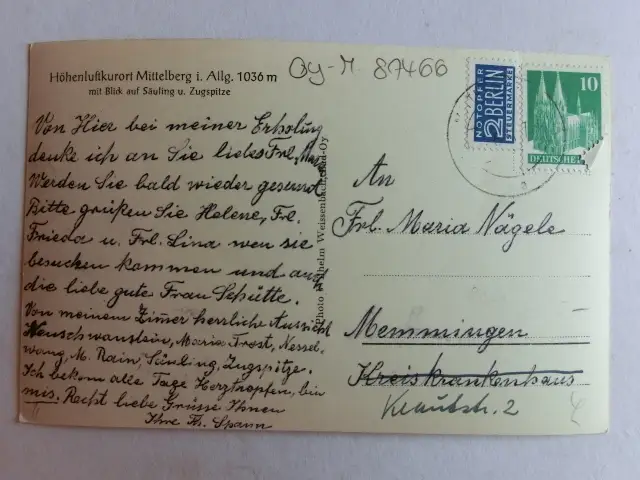 Höhenluftkurort Mittelberg i. Allg. 1036 m
mit Blick auf Säuling u. Zugspitze
Oy-M. 87466
NOTOPFER
2 BERLIN
STEUERMARKE
10
DEUTSCHE
Von Hier bei meiner Erholung
denke ich an Sie liebes Frl.
Werden Sie bald wieder gesund
Bitte grüßen Sie Helene, Frl.
Frieda u. Frl. Lina wen sie
besuchen kommen und auch
die liebe gute Frau Schütte.
Von meinem Zimer herrliche Aussicht
Neuschwanstein, Maria Trost, Nessel-
wang, M. Rain, Säuling, Zugspitze.
Ich bekom alle Tage Herztropfen, bin
mis. Recht liebe Grüsse Ihnen
Ihre Fr. Spann
Photo Wilhelm Weissenbach, Bad-Oy
An
Frl. Maria Nägele
Memmingen
Kreiskrankenhaus
Krautstr. 2